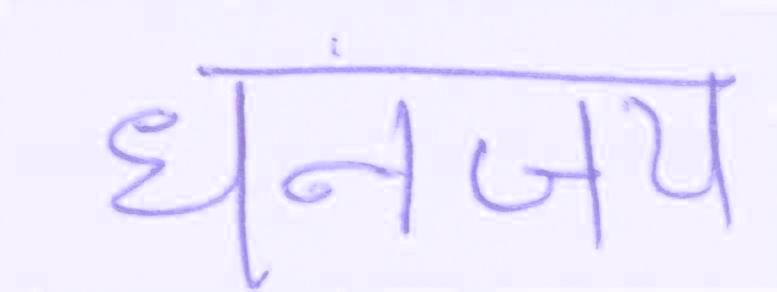 धनंजय